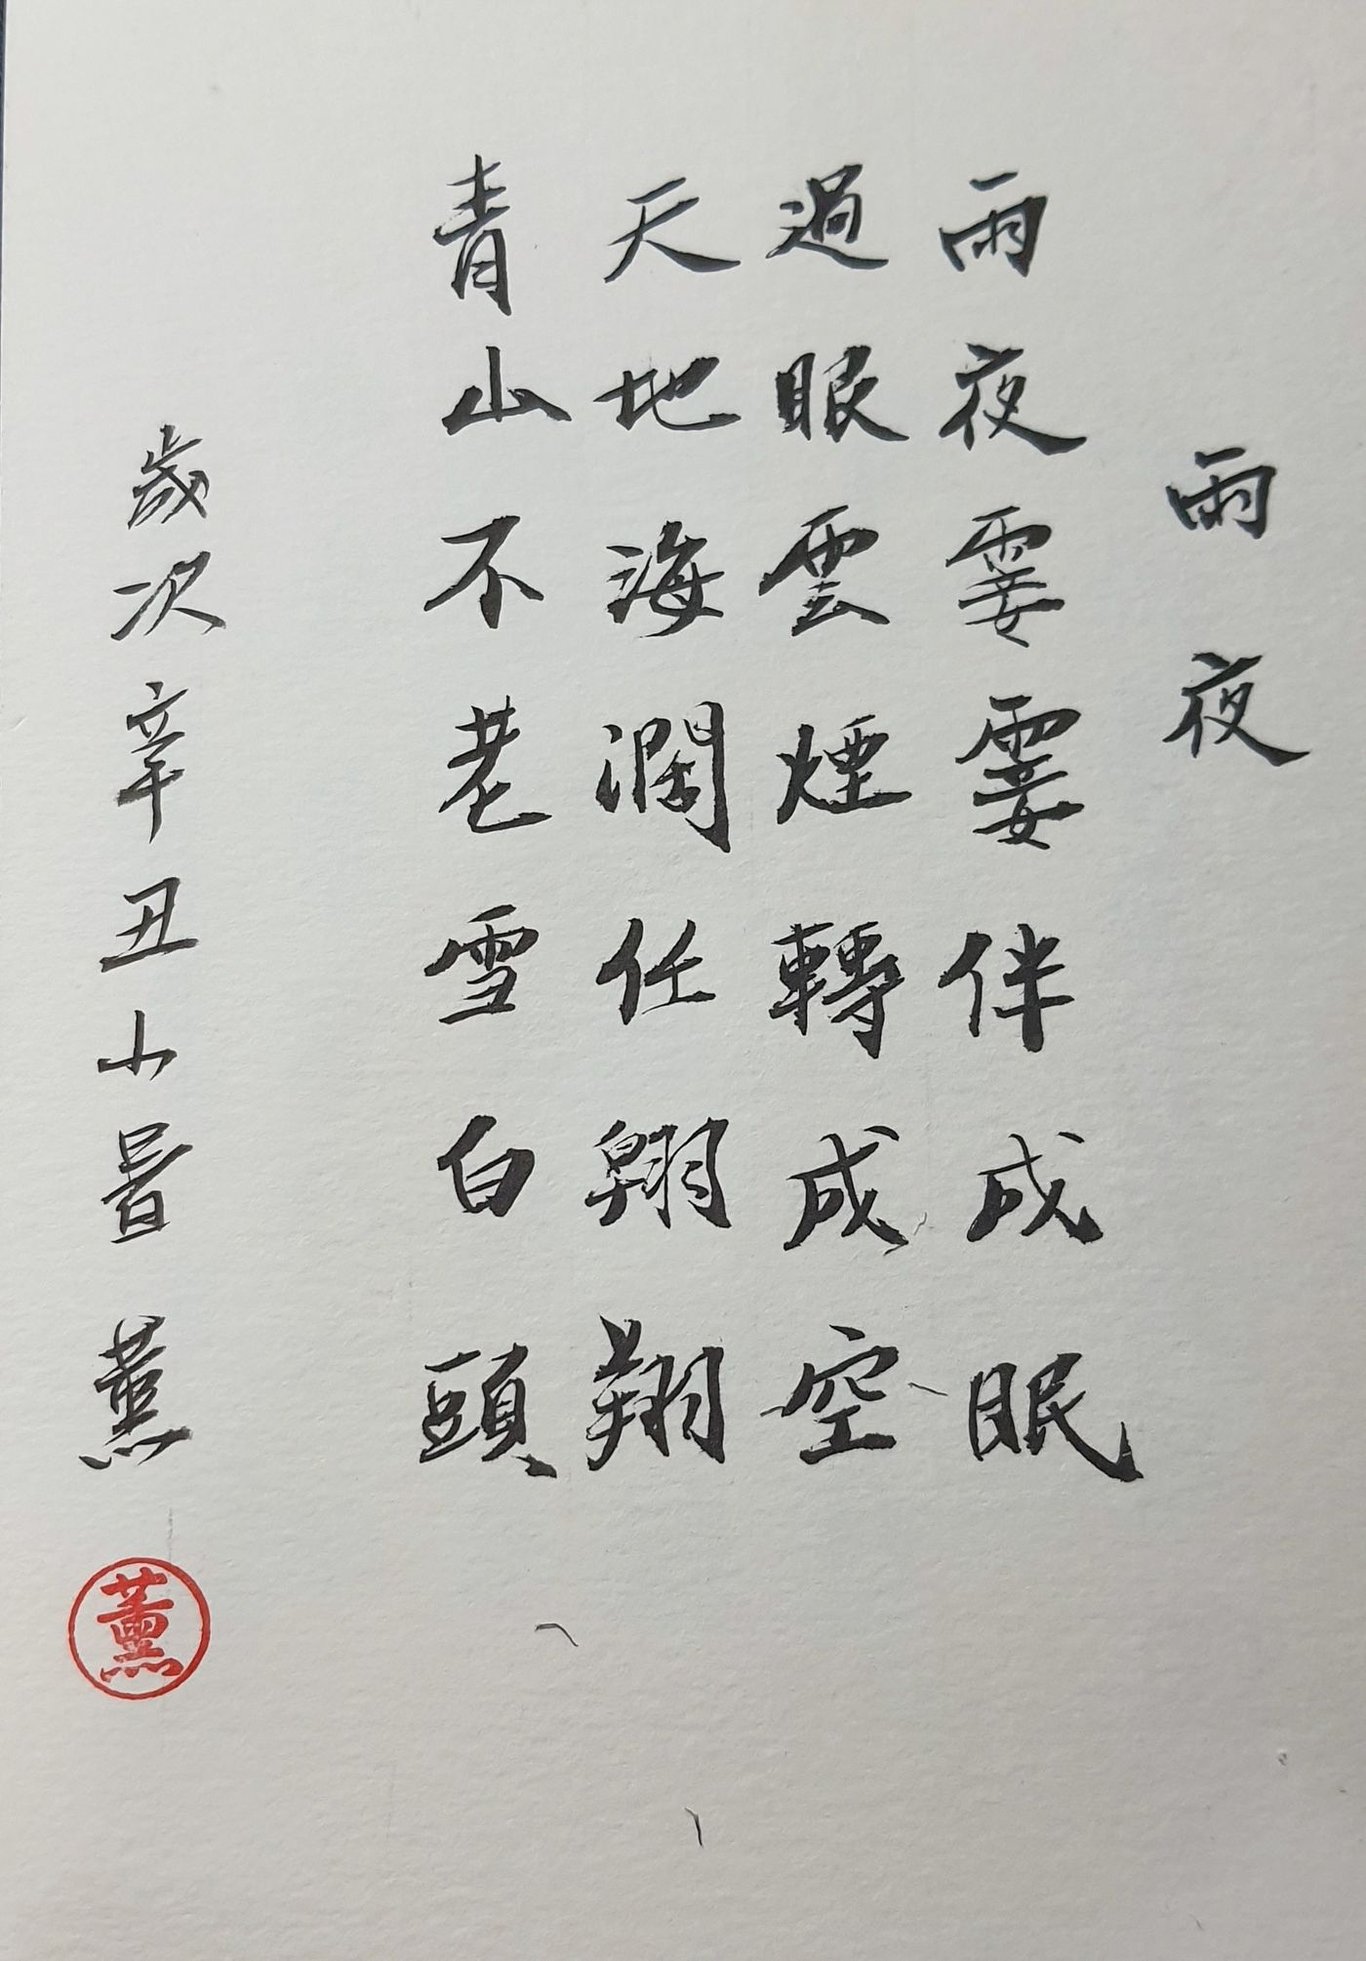 雨夜
雨夜霎霎伴成眠
過眼雲煙轉成空
天地海濶任翱翔
青山不老雪白頭
歲次辛丑小暑 薰
薰